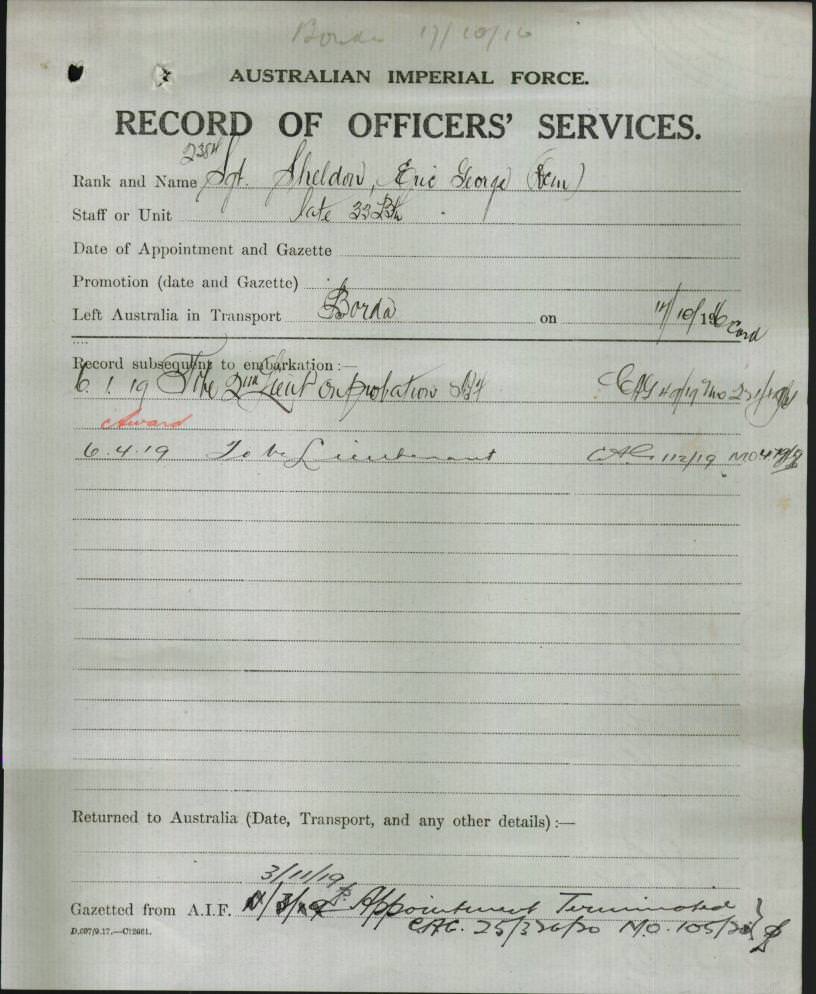 Borda 17/10/16
AUSTRALIAN IMPERIAL FORCE.
RECORD OF OFFICERS' SERVICES.
Rank and Name Sgt. Sheldon, Eric George
Staff or Unit late 33 Bth
Date of Appointment and Gazette
Promotion (date and Gazette)
Left Australia in Transport Borda on 17/10/16 Card
Record subsequent to embarkation:—
6.1.19 To be 2nd Lieut on probation CAG 49/19 MO
Award
6.4.19 To be Lieutenant CAG 112/19 MO
Returned to Australia (Date, Transport, and any other details):—
3/11/19
Gazetted from A.I.F. Appointment Terminated
CAG. 25/326/20 MO. 105/20
D.697/9.17.—C12661.